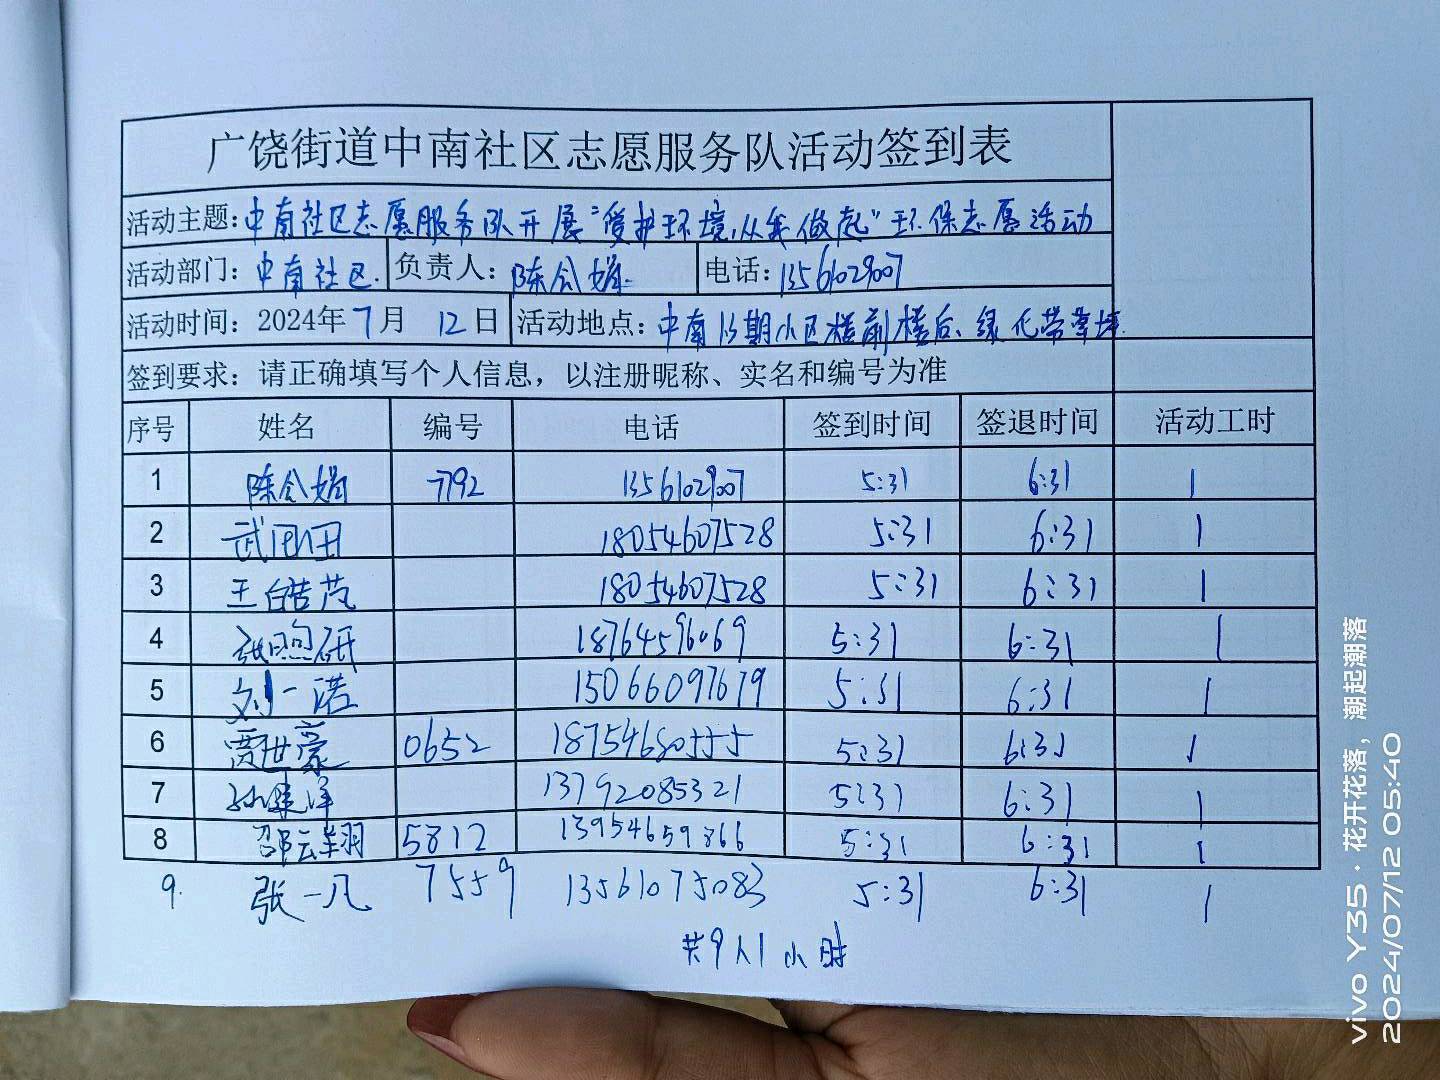 广饶街道中南社区志愿服务队活动签到表
活动主题:中南社区志愿服务队开展"爱护环境,从我做起"环保志愿活动
活动部门: 中南社区. 负责人: 陈会娟 电话: 13561029007
活动时间: 2024年 7月 12日 活动地点: 中南 期小区楼前楼后、绿化带草坪.
签到要求: 请正确填写个人信息，以注册昵称、实名和编号为准
序号 姓名 编号 电话 签到时间 签退时间 活动工时
1 陈会娟 7792 13561029007 5:31 6:31 1
2 武田田 18054607528 5:31 6:31 1
3 王皓芃 18054607528 5:31 6:31 1
4 张煦研 18764596069 5:31 6:31 1
5 刘一诺 15066097679 5:31 6:31 1
6 贾世豪 0652 18754680555 5:31 6:31 1
7 13792085321 5:31 6:31 1
8 邵云翔 5812 13954659866 5:31 6:31 1
9. 张一凡 7559 13561075083 5:31 6:31 1
共9人1小时
vivo Y35 · 花开花落，潮起潮落
2024/07/12 05:40